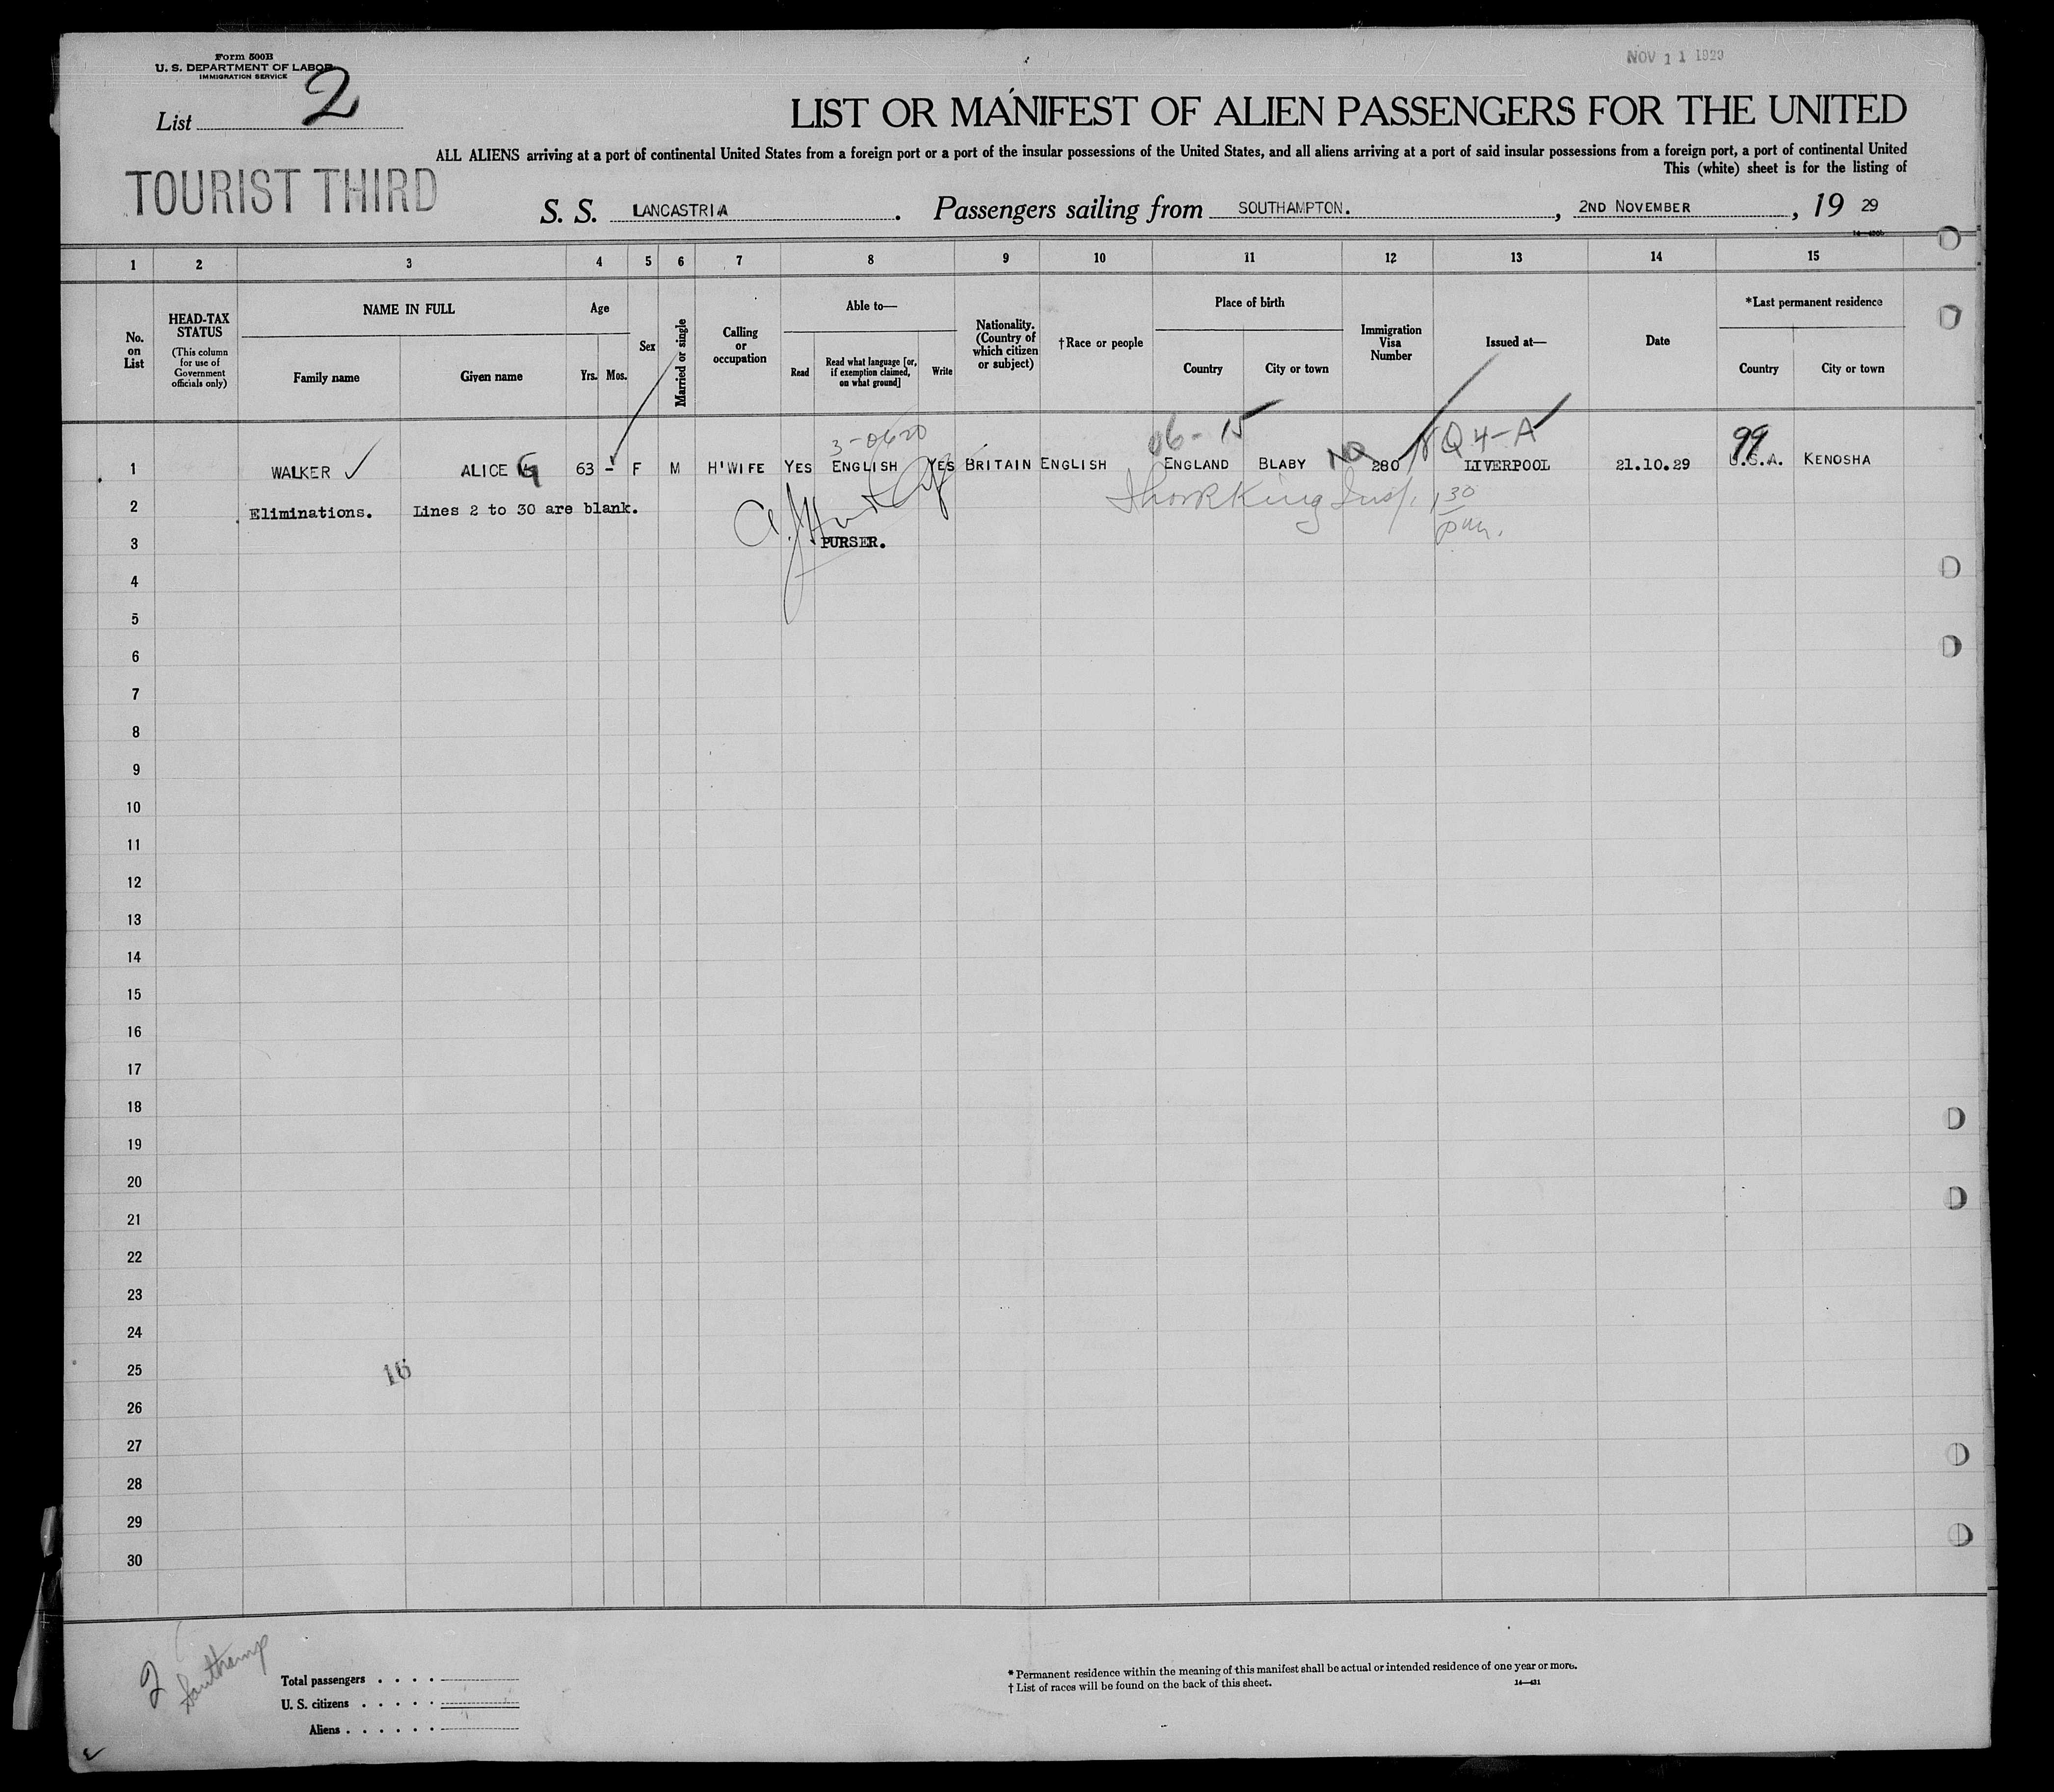 Form 500B
U. S. DEPARTMENT OF LABOR
IMMIGRATION SERVICE
NOV 11 1929
List 2
LIST OR MANIFEST OF ALIEN PASSENGERS FOR THE UNITED
ALL ALIENS arriving at a port of continental United States from a foreign port or a port of the insular possessions of the United States, and all aliens arriving at a port of said insular possessions from a foreign port, a port of continental United
This (white) sheet is for the listing of
TOURIST THIRD
S. S. LANCASTRIA. Passengers sailing from SOUTHAMPTON., 2ND NOVEMBER, 19 29
1 2 3 4 5 6 7 8 9 10 11 12 13 14 15
No. on List
HEAD-TAX STATUS
(This column for use of Government officials only)
NAME IN FULL
Family name
Given name
Age
Yrs. Mos.
Sex
Married or single
Calling or occupation
Able to—
Read
Read what language [or, if exemption claimed, on what ground]
Write
Nationality. (Country of which citizen or subject)
†Race or people
Place of birth
Country
City or town
Immigration Visa Number
Issued at—
Date
*Last permanent residence
Country
City or town
3-0620 06-15 NQ 4-A 99
1 WALKER ALICE G 63 - F M H'WIFE YES ENGLISH YES BRITAIN ENGLISH ENGLAND BLABY NQ 280 LIVERPOOL 21.10.29 U.S.A. KENOSHA
2 Eliminations. Lines 2 to 30 are blank.
130
pm.
3 PURSER.
4
5
6
7
8
9
10
11
12
13
14
15
16
17
18
19
20
21
22
23
24
25
16
26
27
28
29
30
2 Southamp
Total passengers . . . .
U. S. citizens . . . . .
Aliens . . . . . .
* Permanent residence within the meaning of this manifest shall be actual or intended residence of one year or more.
† List of races will be found on the back of this sheet.
14—421